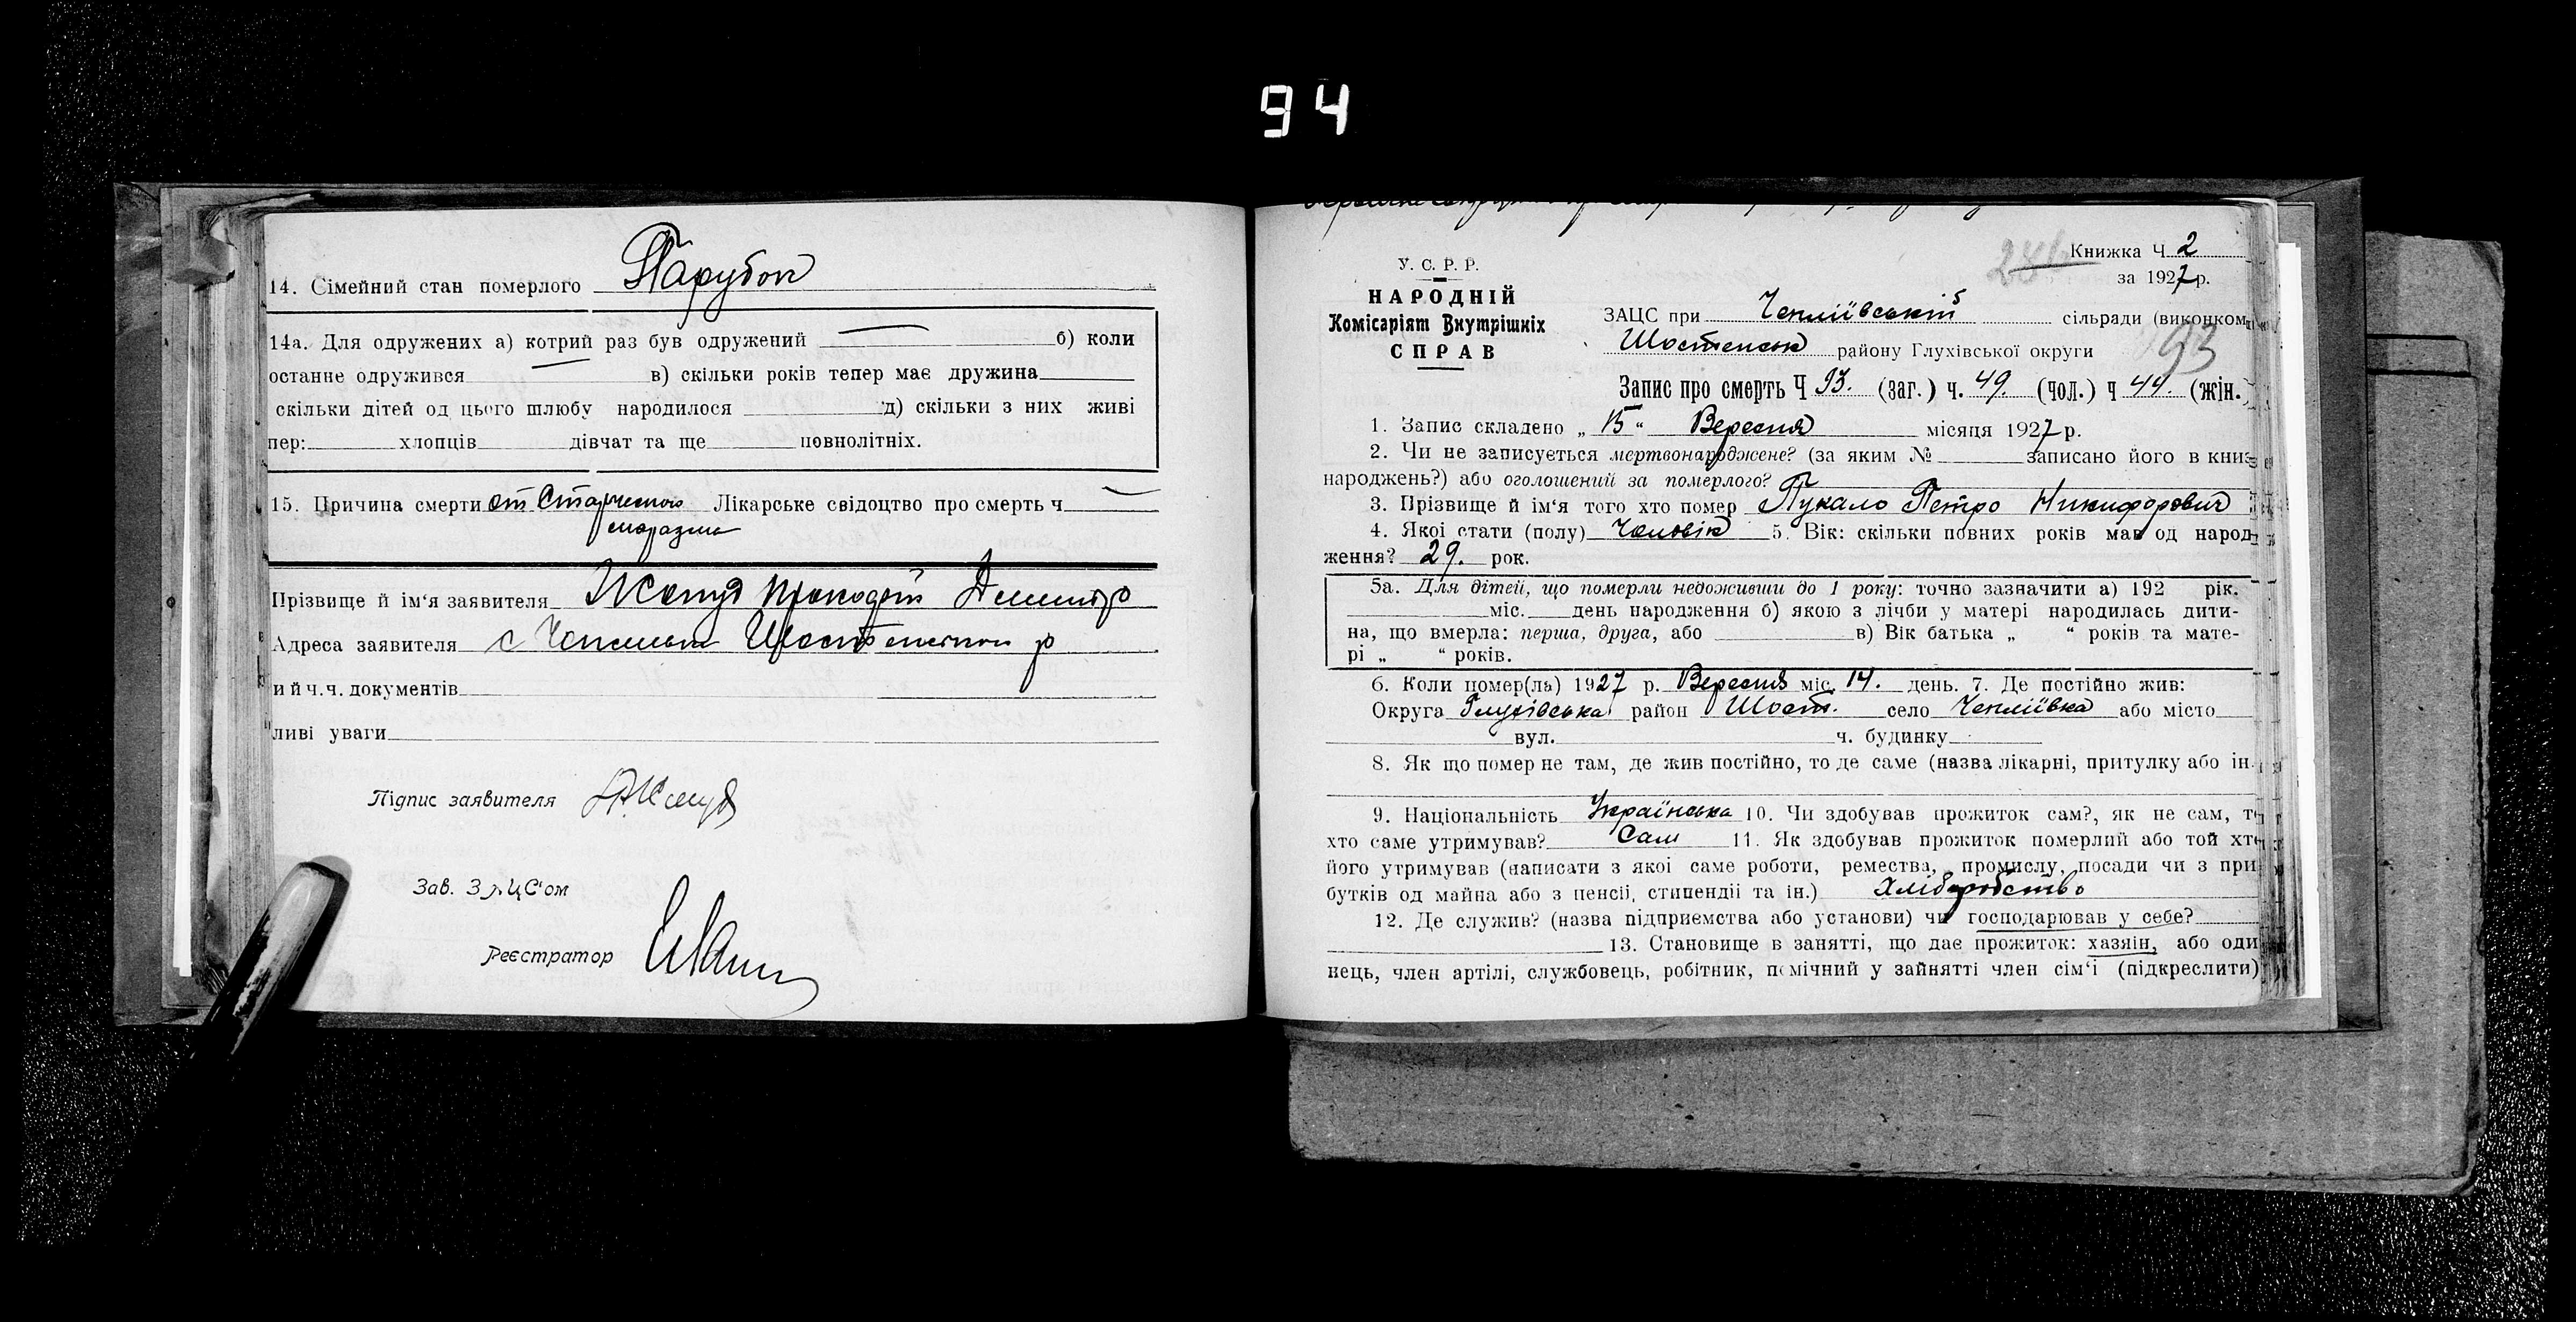 94
14. Сімейний стан померлого Парубок
14а. Для одружених а) котрий раз був одружений б) коли
останне одружився в) скільки років тепер має дружина
скільки дітей од цього шлюбу народилося д) скільки з них живі
пер: хлопців дівчат та ще повнолітніх.
15. Причина смерти от Старческого Лікарське свідоцтво про смерть ч
маразма
Прізвище й ім‘я заявителя Жолуд
Адреса заявителя с
и й ч.ч. документів
ливі уваги
Підпис заявителя
Зав. ЗАЦС‘ом
Реєстратор
Книжка Ч 2
за 1927 р.
У. С. Р. Р.
НАРОДНІЙ
Комісаріят Внутрішніх
СПРАВ
ЗАЦС при Чепліївській сільради (виконком
Шостенськ району Глухівської округи
93
Запис про смерть Ч 93. (заг.) ч. 49. (чол.) ч 44. (жін.)
1. Запис складено „ 15 “ Вересня місяця 1927 р.
2. Чи не записується мертвонароджене? (за яким № записано його в книз
народжень?) або оголошений за померлого?
3. Прізвище й ім‘я того хто помер Пукало Петро Никифорович
4. Якої стати (полу) Чоловік 5. Вік: скільки повних років мав од народ
ження? 29. рок.
5а. Для дітей, що померли недоживши до 1 року: точно зазначити а) 192 рік.
міс. день народження б) якою з лічби у матері народилась дити-
на, що вмерла: перша, друга, або в) Вік батька „ “ років та мате-
рі „ “ років.
6. Коли помер(ла) 1927 р. Вересня міс. 14. день. 7. Де постійно жив:
Округа Глухівська район Шост. село Чепліївка або місто
вул. ч. будинку
8. Як що помер не там, де жив постійно, то де саме (назва лікарні, притулку або ін.
9. Національність Українська 10. Чи здобував прожиток сам?, як не сам, то
хто саме утримував? Сам 11. Як здобував прожиток померлий або той хто
його утримував (написати з якої саме роботи, ремества, промислу, посади чи з при
бутків од майна або з пенсії, стипендії та ін.) Хліборобство
12. Де служив? (назва підприємства або установи) чи господарював у себе?
13. Становище в занятті, що дає прожиток: хазяїн, або оди
нець, член артілі, службовець, робітник, помічний у зайнятті член сім‘ї (підкреслити)